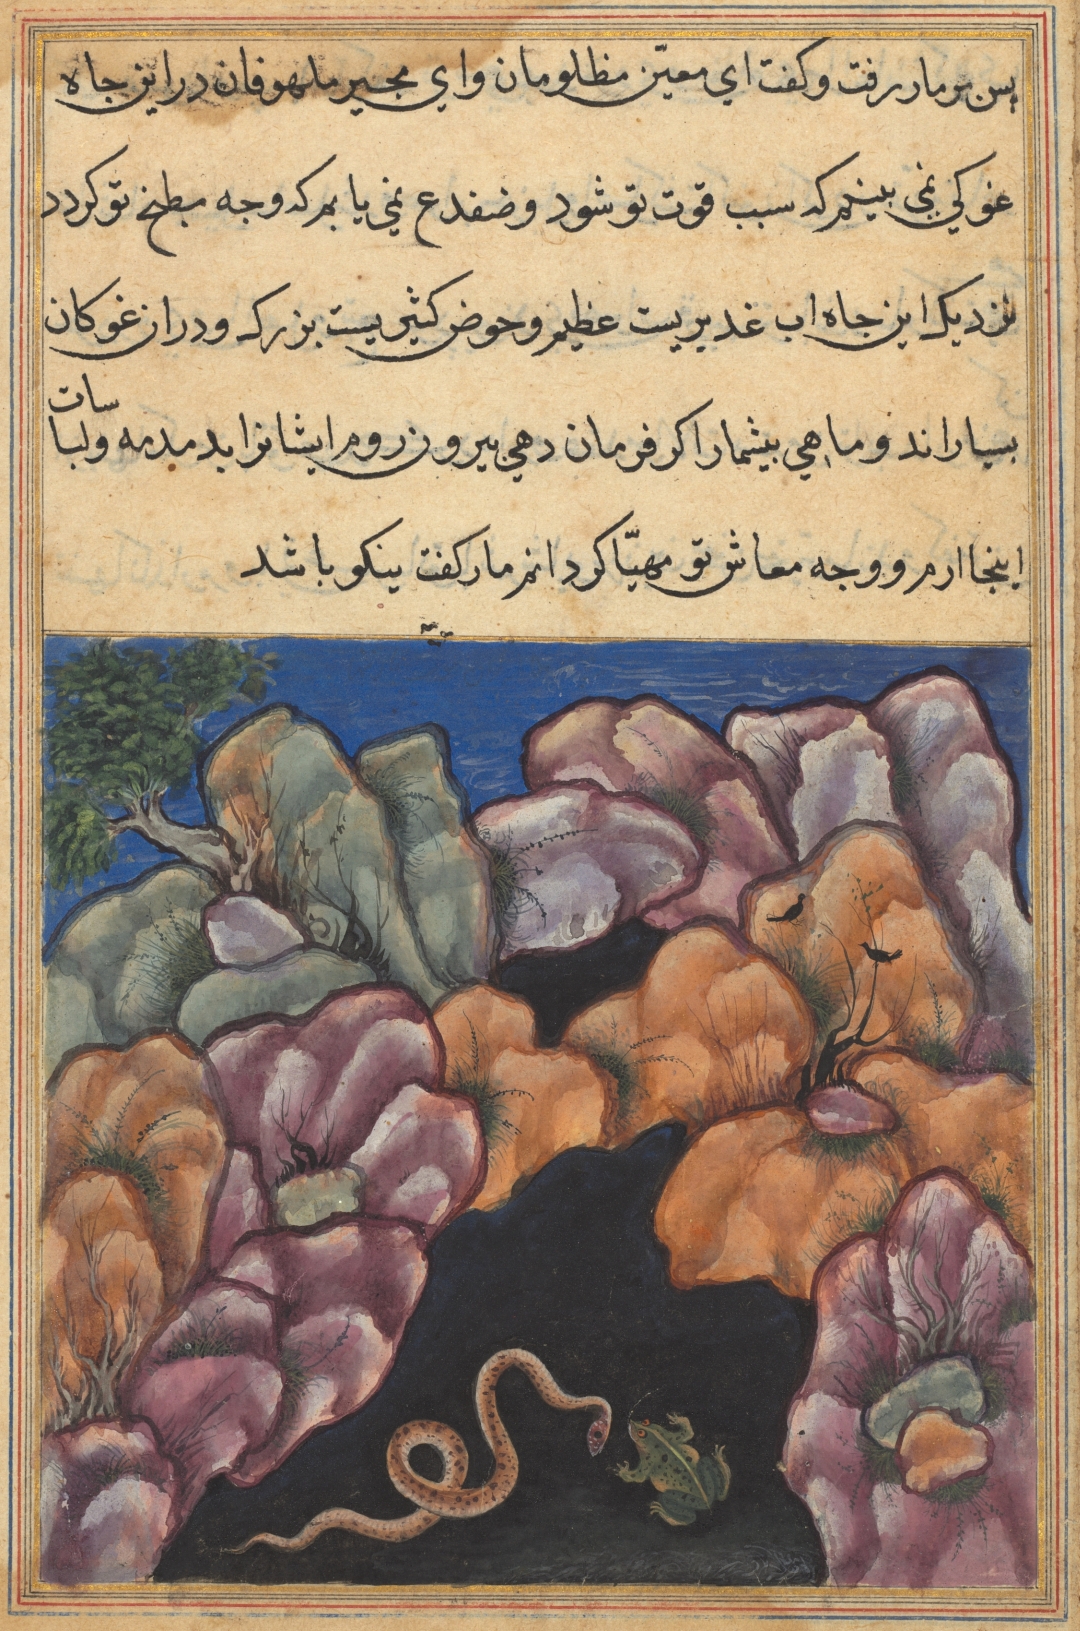 پس بر مار رفت و کفت ای معین مظلومان وای مجیر ملهوفان در این جاه
غوکی نمی بینم که سبب قوت تو شود و ضفدع نمی یابم که وجه مطبخ تو کردد
نزدیک این جاه اب غدیریست عظیم و حوض کثیریست بزرک و دران غوکان
بسیاراند و ماهی بیشمار اکر فرمان دهی بیرون روم ایشانرا بدمدمه ولباسات
اینجا ارم و وجه معاش تو مهیّا کردانم مار کفت نیکو باشد